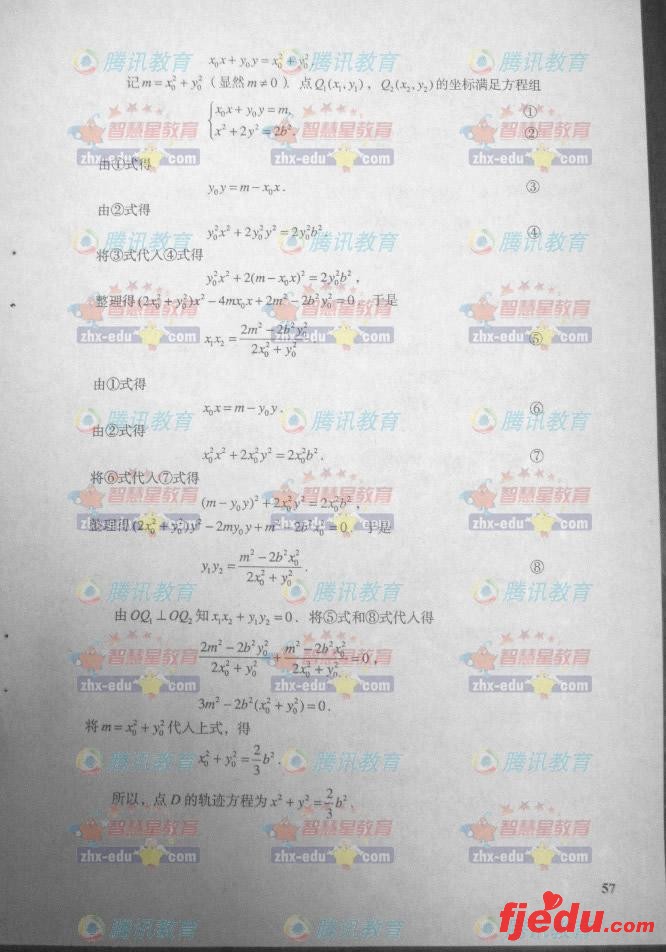 x₀x + y₀y = x₀² + y₀²,
记 m = x₀² + y₀²（显然 m ≠ 0）. 点 Q₁(x₁, y₁)，Q₂(x₂, y₂) 的坐标满足方程组
x₀x + y₀y = m, ①
x² + 2y² = 2b². ②
由①式得
y₀y = m − x₀x. ③
由②式得
y₀²x² + 2y₀²y² = 2y₀²b². ④
将③式代入④式得
y₀²x² + 2(m − x₀x)² = 2y₀²b²，
整理得 (2x₀² + y₀²)x² − 4mx₀x + 2m² − 2b²y₀² = 0. 于是
x₁x₂ = (2m² − 2b²y₀²)/(2x₀² + y₀²) ⑤
由①式得
x₀x = m − y₀y. ⑥
由②式得
x₀²x² + 2x₀²y² = 2x₀²b². ⑦
将⑥式代入⑦式得
(m − y₀y)² + 2x₀²y² = 2x₀²b²，
整理得 (2x₀² + y₀²)y² − 2my₀y + m² − 2b²x₀² = 0. 于是
y₁y₂ = (m² − 2b²x₀²)/(2x₀² + y₀²). ⑧
由 OQ₁ ⊥ OQ₂ 知 x₁x₂ + y₁y₂ = 0. 将⑤式和⑧式代入得
(2m² − 2b²y₀²)/(2x₀² + y₀²) + (m² − 2b²x₀²)/(2x₀² + y₀²) = 0，
3m² − 2b²(x₀² + y₀²) = 0.
将 m = x₀² + y₀² 代入上式，得
x₀² + y₀² = 2/3 b².
所以，点 D 的轨迹方程为 x² + y² = 2/3 b².
57
腾讯教育
智慧星教育
zhx-edu.com
fjedu.com